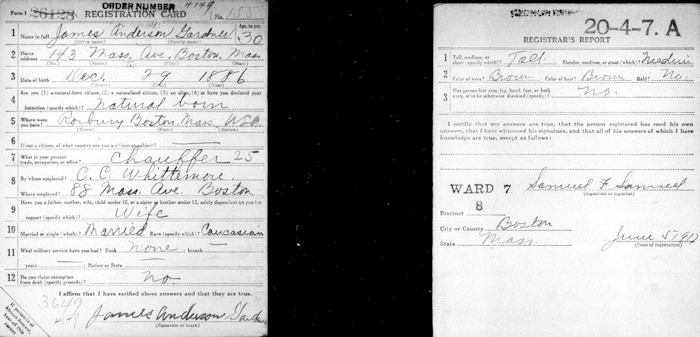 Form 1
ORDER NUMBER 4149
26128 REGISTRATION CARD No.
1 Name in full James Anderson Gardner Age, in yrs. 30
(Given name) (Family name)
2 Home address 143 Mass. Ave. Boston, Mass.
3 Date of birth Dec. 29 1886
(Month) (Day) (Year)
4 Are you (1) a natural-born citizen, (2) a naturalized citizen, (3) an alien, (4) or have you declared your
intention (specify which)? natural born
5 Where were you born? Roxbury Boston Mass.
(Town) (State) (Nation)
6 If not a citizen, of what country are you a citizen or subject?
7 What is your present trade, occupation, or office? Chauffer 25
8 By whom employed? C. C. Whittemore
Where employed? 88 Mass. Ave. Boston
9 Have you a father, mother, wife, child under 12, or a sister or brother under 12, solely dependent on you for
support (specify which)? Wife
10 Married or single (which)? Married Race (specify which)? Caucasian
11 What military service have you had? Rank none ; branch
years ; Nation or State
12 Do you claim exemption from draft (specify grounds)? No.
I affirm that I have verified above answers and that they are true.
3649
James Anderson Gardner
(Signature or mark)
If person is of African descent, tear off this corner
20-4-7. A
REGISTRAR'S REPORT
1 Tall, medium, or short (specify which)? Tall Slender, medium, or stout (which)? Medium
2 Color of eyes? Brown Color of hair? Brown Bald? No.
3 Has person lost arm, leg, hand, foot, or both eyes, or is he otherwise disabled (specify)? No.
I certify that my answers are true, that the person registered has read his own
answers, that I have witnessed his signature, and that all of his answers of which I have
knowledge are true, except as follows:
Samuel F. Samuel
(Signature of registrar)
WARD 7
Precinct 8
City or County Boston
State Mass
June 5 1917
(Date of registration)